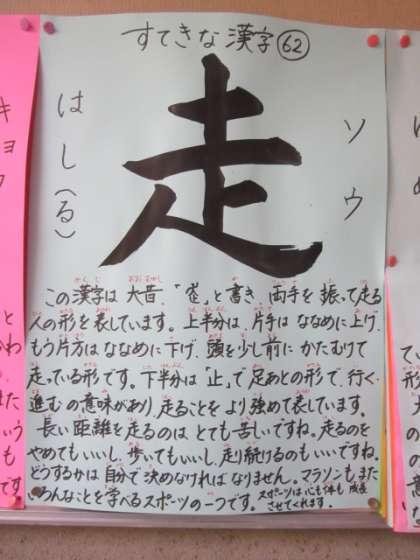 すてきな漢字 62
走
はし(る)
ソウ
この漢字は大昔、「㞫」と書き、両手を振って走る
人の形を表しています。上半分は、片手はななめに上げ、
もう片方はななめに下げ、頭を少し前にかたむけて
走っている形です。下半分は「止」で足あとの形で、行く、
進むの意味があり、走ることをより強めて表しています。
長い距離を走るのはとても苦しいですね。走るのを
やめてもいいし、歩いてもいいし、走り続けるのもいいですね。
どうするかは自分で決めなければなりません。マラソンもまた
いろんなことを学べるスポーツの一つです。スポーツは心も体も成長
させてくれます。
キョウ